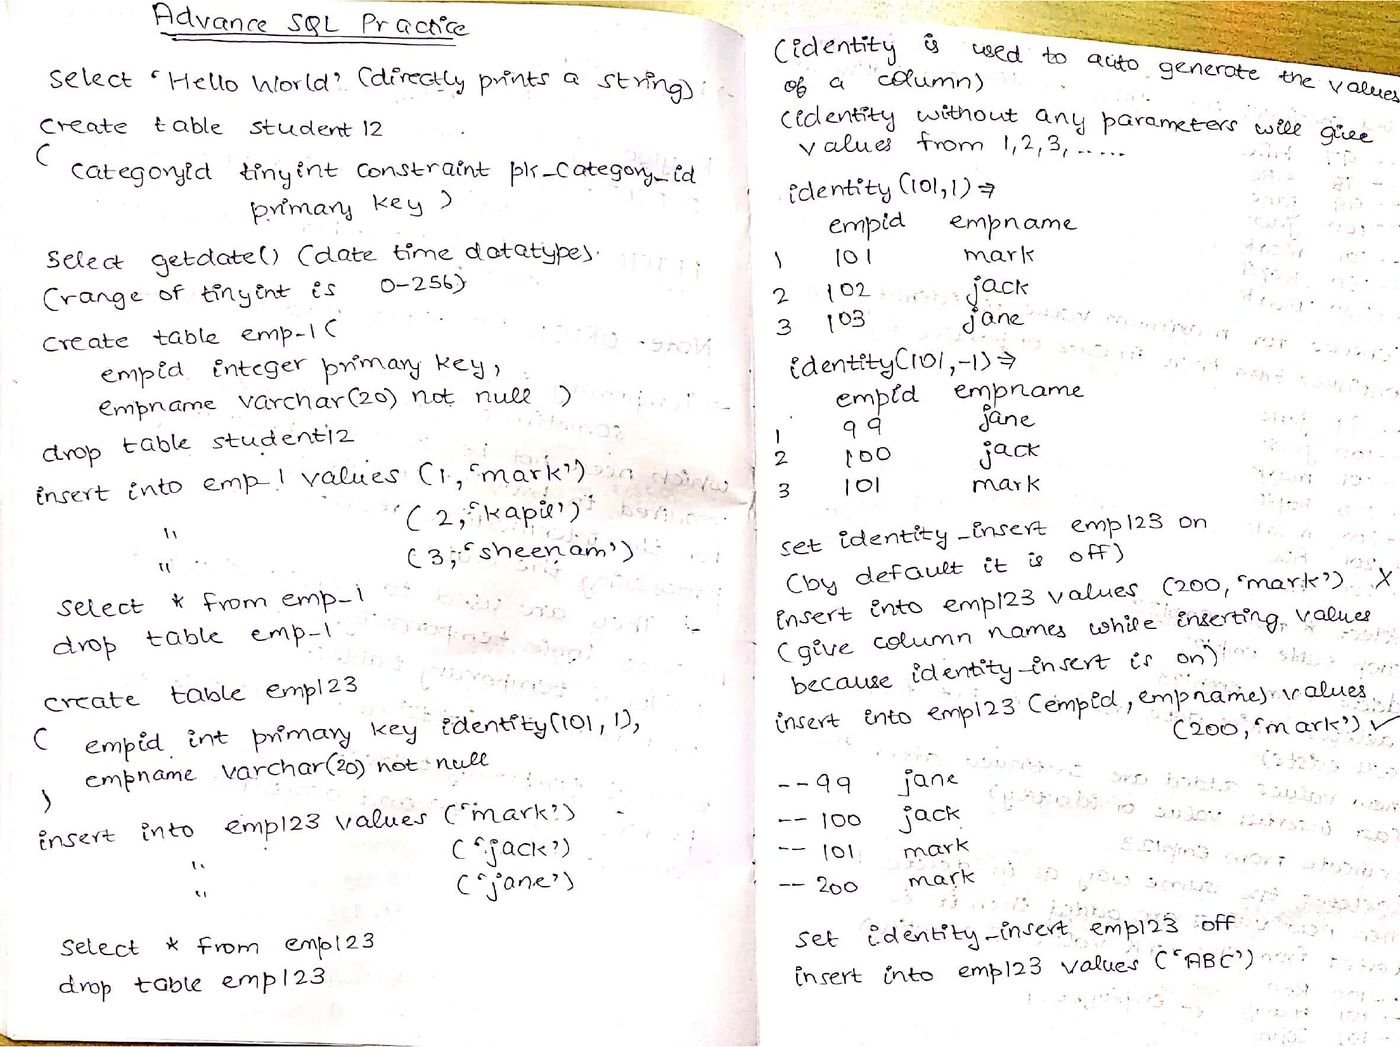 Advance SQL Practice
Select 'Hello World' (directly prints a string)
create table student12
(
categoryid tinyint constraint pk_category_id
primary key )
Select getdate() (date time datatypes)
(range of tinyint is 0-256)
create table emp-1(
empid integer primary key,
empname varchar(20) not null )
drop table student12
insert into emp_1 values (1,'mark')
" (2,'kapil')
" (3,'sheenam')
select * from emp_1
drop table emp-1
create table emp123
( empid int primary key identity(101, 1),
empname varchar(20) not null
)
insert into emp123 values ('mark')
" ('jack')
" ('jane')
select * from emp123
drop table emp123
(identity is used to auto generate the values
of a column)
(identity without any parameters will give
values from 1,2,3,.....
identity(101,1) ⇒
empid empname
1 101 mark
2 102 jack
3 103 jane
identity(101,-1) ⇒
empid empname
1 99 jane
2 100 jack
3 101 mark
set identity_insert emp123 on
(by default it is off)
insert into emp123 values (200,'mark') X
(give column names while inserting values
because identity-insert is on)
insert into emp123 (empid, empname) values
(200,'mark') ✓
--99 jane
-- 100 jack
-- 101 mark
-- 200 mark
set identity_insert emp123 off
insert into emp123 values ('ABC')